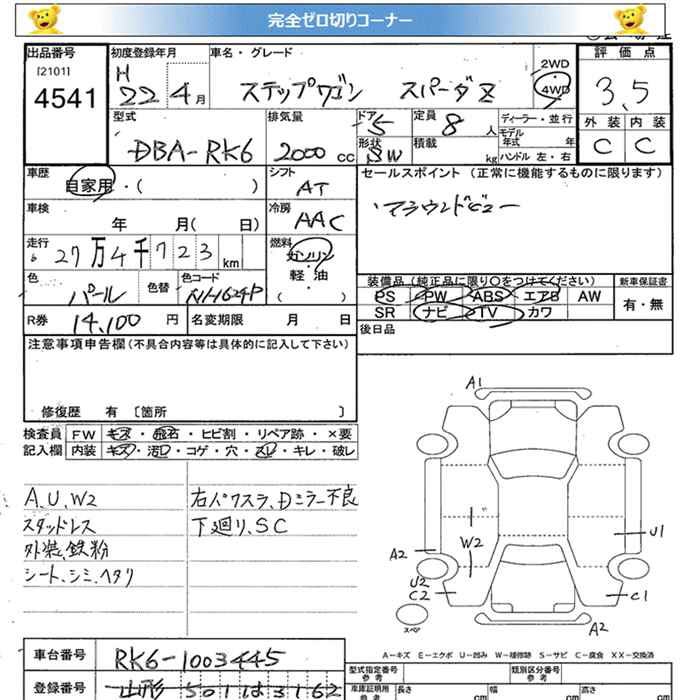 完全ゼロ切りコーナー
出品番号 初度登録年月 車名・グレード 評価点
[2101] H 2WD
4541 22 4月 ステップワゴン スパーダZ 4WD 3.5
型式 排気量 ドア 定員 ディーラー・並行 外装 内装
DBA-RK6 2000cc 5 8人 モデル年式 年 C C
形状 SW 積載 kg ハンドル 左・右
車歴 シフト セールスポイント (正常に機能するものに限ります)
自家用・( ) AT
車検 冷房 アラウンドビュー
年 月( 日) AAC
走行 27万4千723km 燃料 ガソリン
色 色替 色コード 軽・油 装備品(純正品に限り○をつけてください) 新車保証書
パール NH624P ( ) PS PW ABS エアB AW 有・無
R券 14,100円 名変期限 月 日 SR ナビ TV カワ
注意事項申告欄(不具合内容等は具体的に記入して下さい) 後日品
修復歴 有 [箇所 ]
検査員 FW キズ・飛石・ヒビ割・リペア跡・×要
記入欄 内装 キズ・汚レ・コゲ・穴・スレ・キレ・破レ
A1
A.U.W2 右パワスラ、Dミラー不良
スタッドレス 下廻り、SC
外装、鉄粉
シート、シミ、ヘタリ
U1
W2
A2
U2
C2 C1
スペア
A2
A-キズ E-エクボ U-凹み W-補修跡 S-サビ C-腐食 XX-交換済
車台番号 RK6-1003445 型式指定番号 参考 類別区分番号 参考
登録番号 山形 501 は 3162 車庫証明用 参考 長さ cm 幅 cm 高さ cm